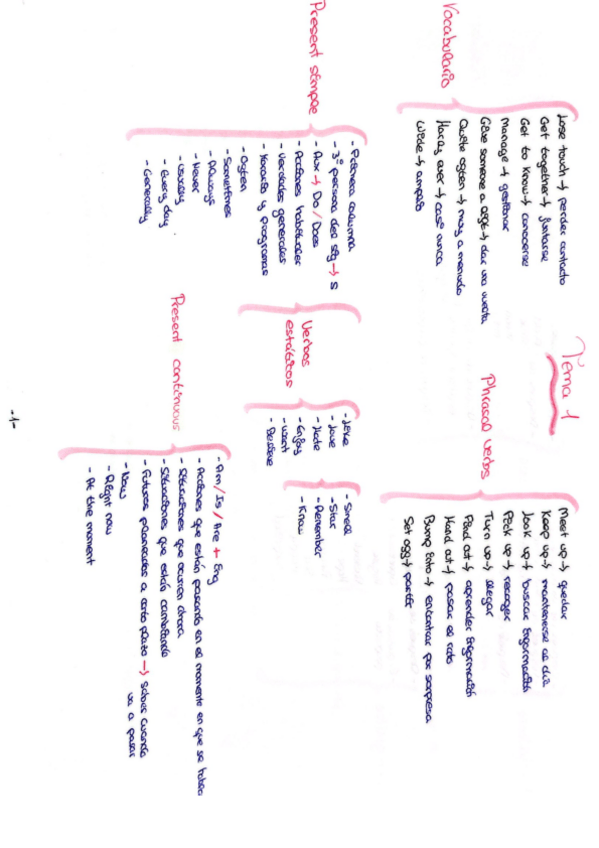 Tema 1
Vocabulario
Lose touch → perder contacto
Get together → juntarse
Get to know → conocerse
Manage → gestionar
Give someone a → dar una vuelta
Quite often → muy a menudo
Hardly ever → casi nunca
Wide → amplio
Phrasal verbs
Meet up → quedar
Keep up → mantenerse al día
Look up → buscar información
Pick up → recoger
Turn up → llegar
Find out → aprender información
Hand out → pasar el rato
Bump into → encontrar por sorpresa
Set off → partir
Present simple
- Primera columna
- 3ª persona del sig → s
- Aux → Do / Does
- Acciones habituales
- Verdades generales
- Horario y programas
- Often
- Sometimes
- Always
- Never
- Usually
- Every day
- Generally
Verbos
estáticos
- Like
- Love
- Hate
- Enjoy
- Want
- Believe
- Smell
- Star
- Remember
- Know
Present continuous
- Am / Is / Are + ing
- Acciones que están pasando en el momento en que se habla
- Situaciones que ocurren ahora
- Situaciones que están cambiando
- Futuros planeados a corto plazo → saber cuando
va a pasar
- Now
- Right now
- At the moment
-1-